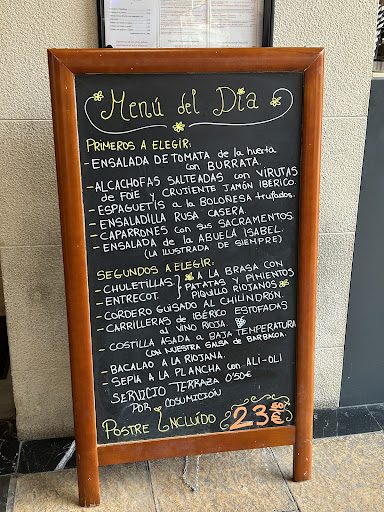 Menú del Día
PRIMEROS A ELEGIR:
- ENSALADA DE TOMATA de la huerta
con BURRATA.
- ALCACHOFAS SALTEADAS con VIRUTAS
de FOIE y CRUJIENTE JAMÓN IBERICO.
- ESPAGUETIS a la BOLOÑESA trufados.
- ENSALADILLA RUSA CASERA.
- CAPARRONES con sus SACRAMENTOS.
- ENSALADA de la ABUELA ISABEL.
(LA ILUSTRADA DE SIEMPRE)
SEGUNDOS A ELEGIR:
- CHULETILLAS A LA BRASA CON
- ENTRECOT. PATATAS y PIMIENTOS
PIQUILLO RIOJANOS
- CORDERO GUISADO AL CHILINDRÓN.
- CARRILLERAS de IBÉRICO ESTOFADAS
al VINO RIOJA
- COSTILLA ASADA a BAJA TEMPERATURA
CON NUESTRA SALSA de BARBACOA.
- BACALAO A LA RIOJANA.
- SEPIA A LA PLANCHA con ALI-OLI
SERVICIO TERRAZA 0'50€
POR COSUMICIÓN
POSTRE INCLUÍDO 23'50